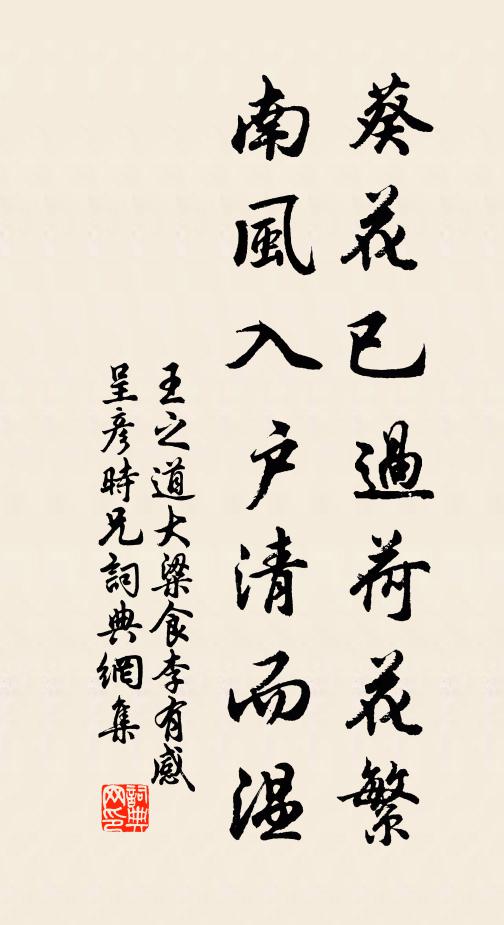 葵花已過荷花繁
南風入户清而温
王之道大梁食李有感
呈彥時兄詞典網集
詞典
网印